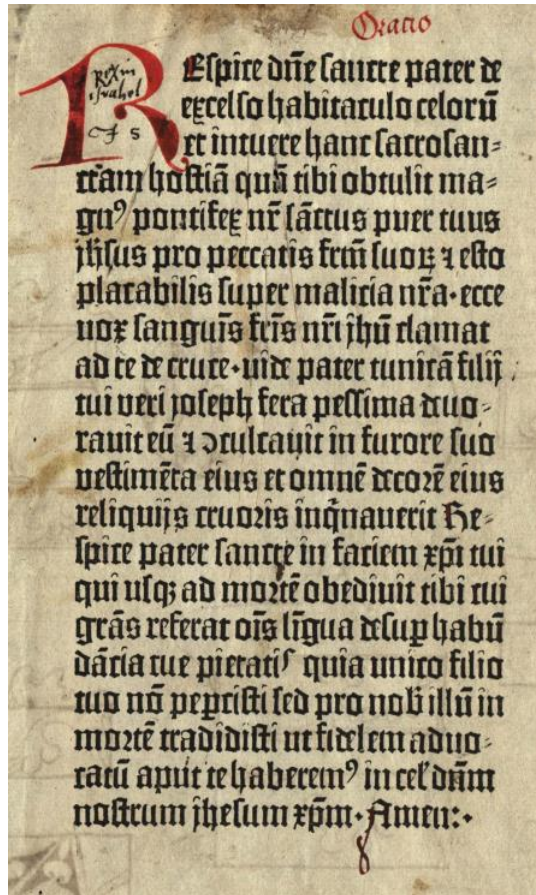 Oratio
REspice dñe sancte pater de
Rex in
israhel
excelso habitaculo celorũ
et intuere hanc sacrosan=
ctam hostiã quã tibi obtulit ma=
gnꝯ pontifex nr̃ sãctus puer tuus
jhsus pro peccatis frm̃ suoꝝ ⁊ esto
placabilis super malicia nr̃a·ecce
uox sanguis̃ fris̃ nr̃i jhũ clamat
ad te de cruce·uide pater tunicã filij
tui veri joseph fera pessima deuo=
rauit eũ ⁊ ↄculcauit in furore suo
vestimẽta eius et omnẽ decorẽ eius
reliquijs cruoris inq̃nauerit Re=
spice pater sancte in faciem xp̃i tui
qui usqꝫ ad mortẽ obediuit tibi cui
grãs referat oĩs lĩgua desuꝑ habũ
dãcia tue pietatis quia unico filio
tuo nõ peꝑcisti sed pro nob̃ illũ in
mortẽ tradidisti ut fidelem aduo=
catũ aput te haberemꝯ in cel̃ dñm
nostrum jhesum xp̃m·Amen:·